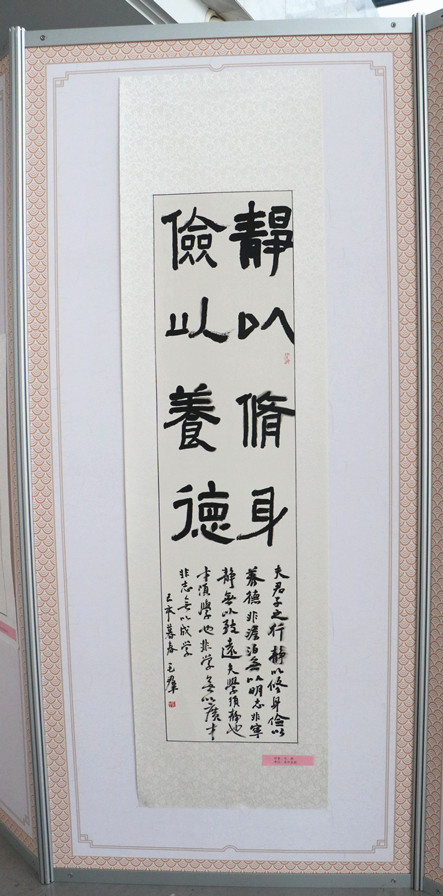 靜以脩身
儉以養德
夫君子之行靜以修身儉以
養德非澹泊無以明志非寧
靜無以致遠夫學須靜也
才須學也非學無以廣才
非志無以成学
乙未暮春